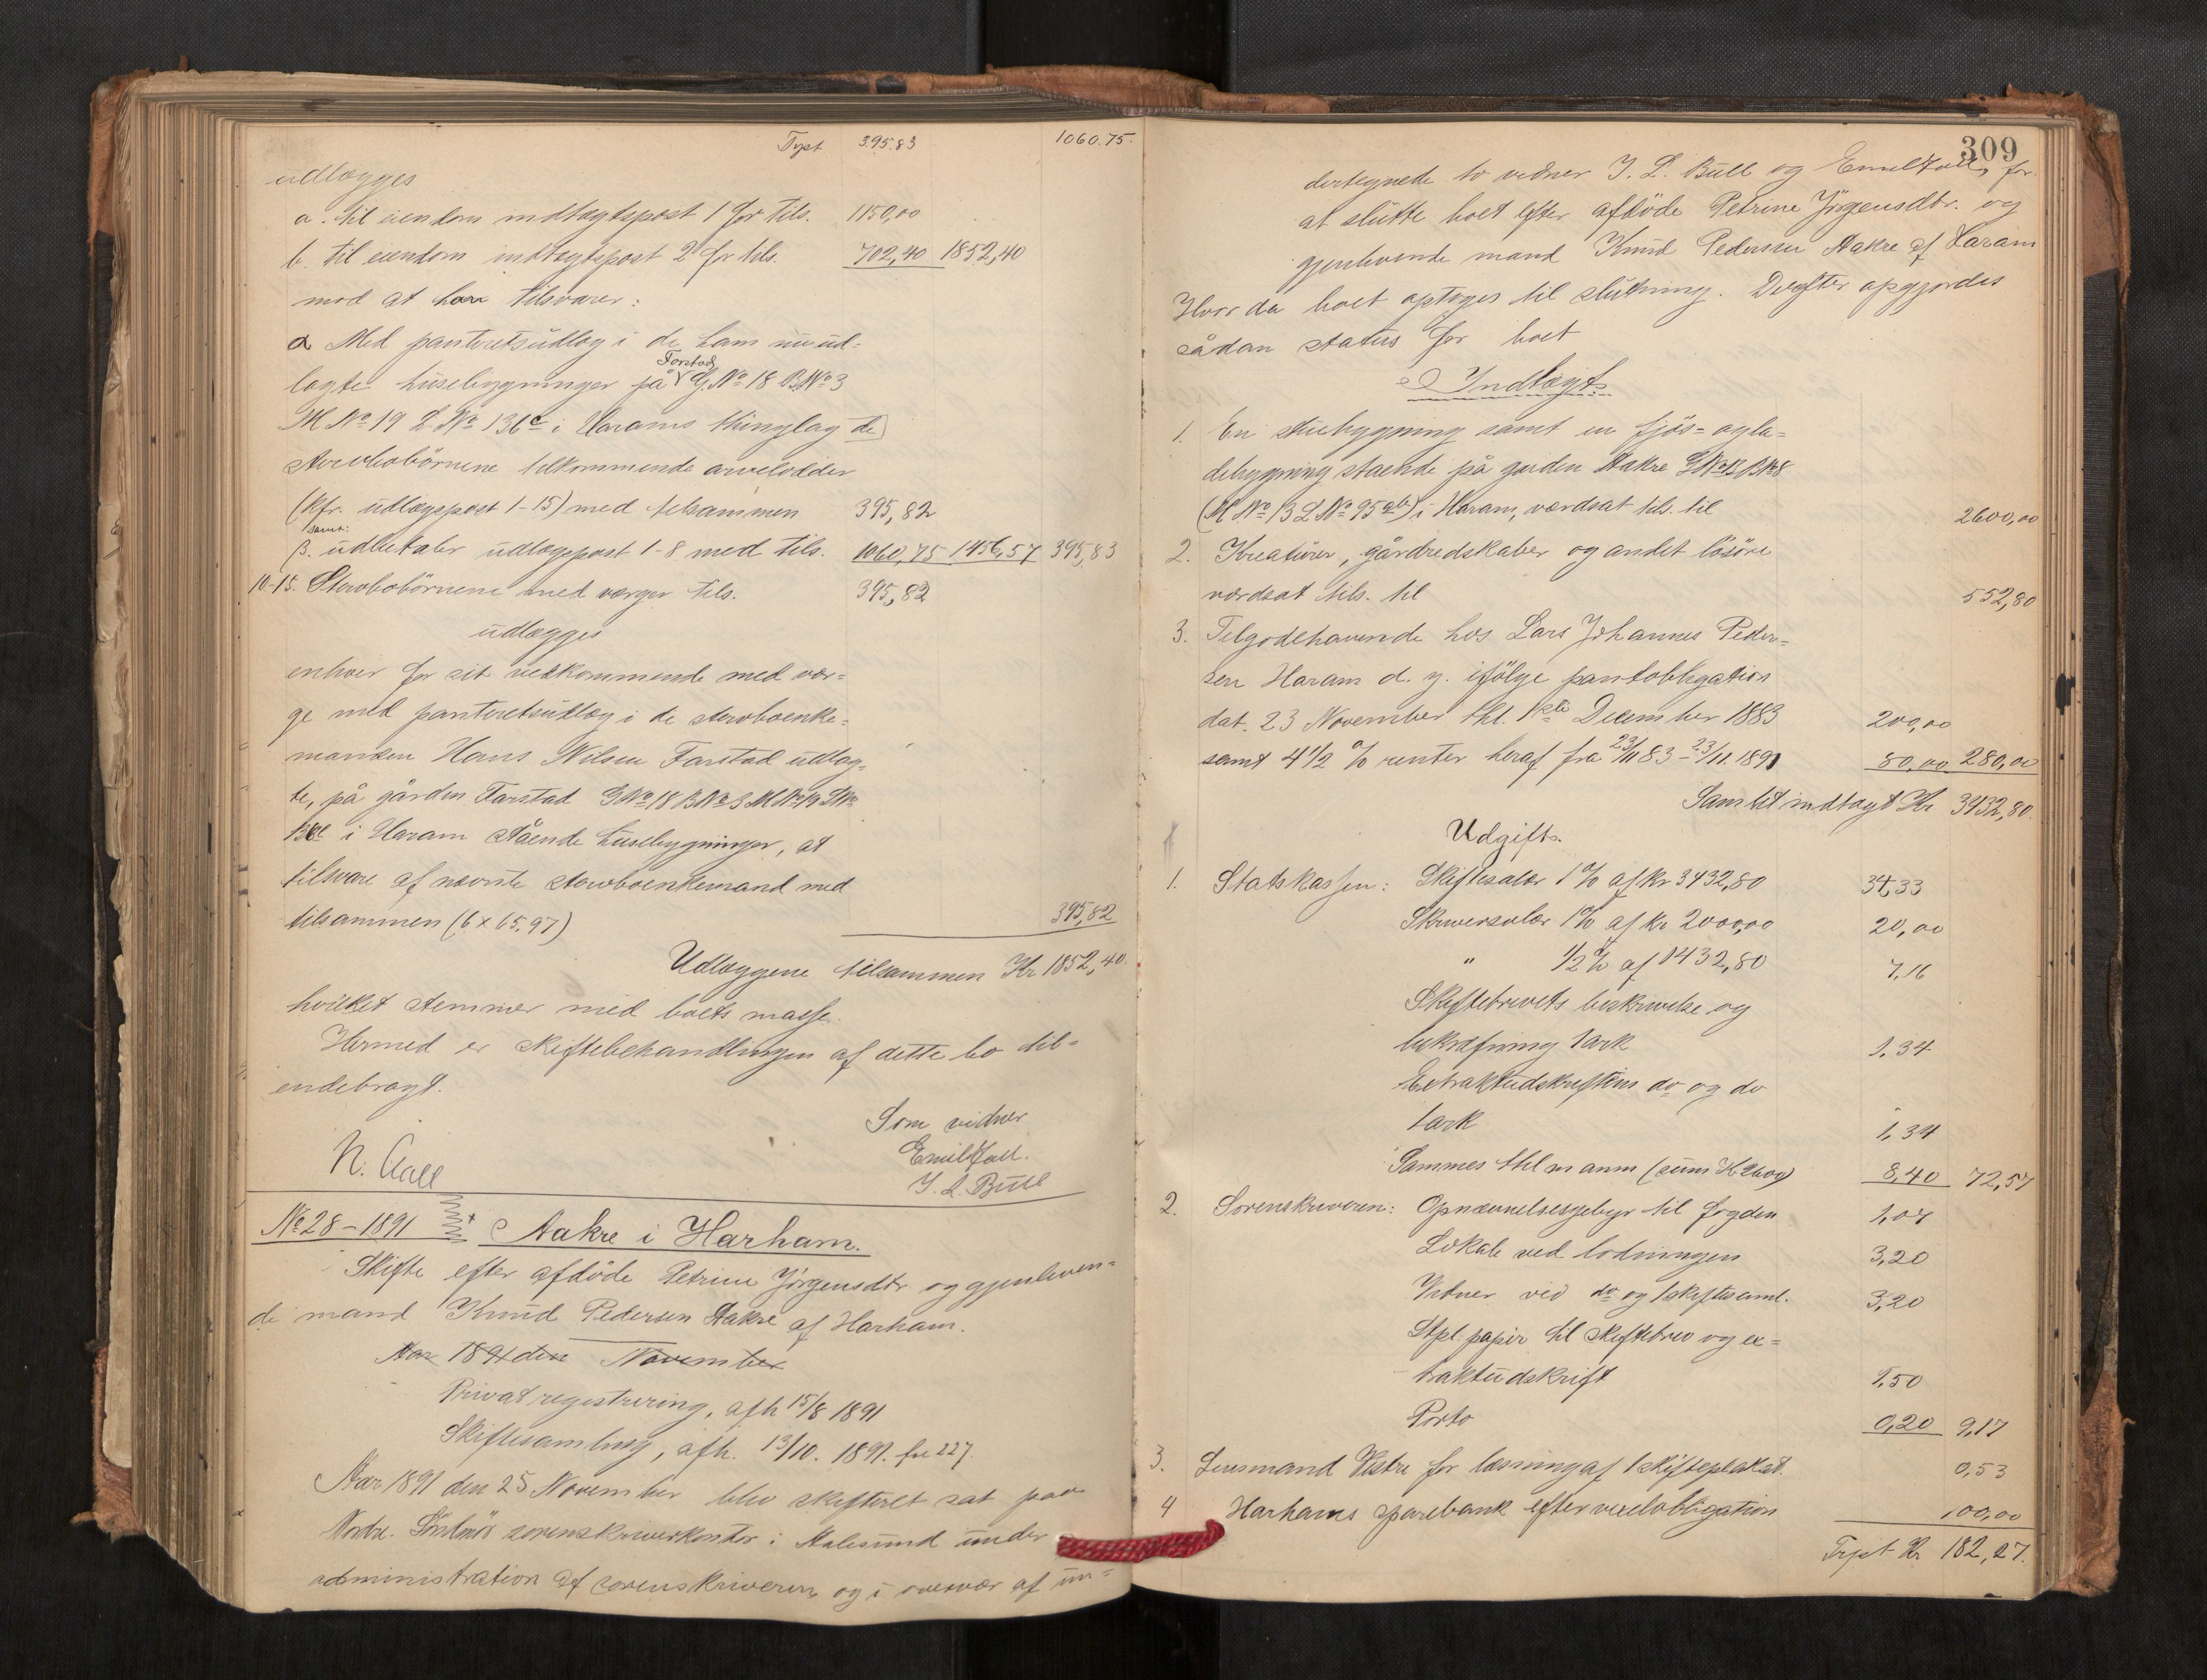 Trpt 395.83 1060.75.
udlægges
a. til eiendom indtægtspost 1 for tils. 1150,00
b. til eiendom indtægtspost 2 for tils. 702,40 1852,40
mod at han tilsvarer:
α Med panteretsudlæg i de ham nu ud=
Farstad
lagte husebygninger på G.No 18 B.No 3
M No 19 L No 136c i Harams thinglag de
stervbobørnene tilkommende arvelodder
(kfr. udlægspost 1-15) med tilsammen 395,82
samt:
β. udbetaler udlægspost 1-8 med tils. 1060,75 1456,57 395,83
10-15. Stervbobørnene med værger tils. 395,82
udlægges
enhver for sit vedkommende med vær=
ge med panteretsudlæg i de stervboenke=
manden Hans Nilsen Farstad udlag=
te, på gården Farstad GNo 18 BNo 3 MNo 19 LNo
136c i Haram stående husebygninger, at
tilsvare af nævnte stervboenkemand med
tilsammen (6 x 65,97) 395,82
Udlæggene tilsammen Kr 1852,40.
hvilket stemmer med boets masse.
Hermed er skiftebehandlingen af dette bo til=
endebragt.
Som vidner
N. Aall Emil Fall.
J. L. Bull
No 28 - 1891 Aakre i Harham.
Skifte efter afdøde Petrine Jørgensdtr og gjenleven=
de mand Knud Pedersen Aakre af Harham.
Aar 1891 den November
Privat registrering, afh 15/8 1891
Skiftesamling, afh. 13/10. 1891. fol 227.
Aar 1891 den 25 November blev skifteret sat paa
Nordre Söndmörs sorenskriverkontor i Aalesund under
administration af sorenskriveren og i overvær af un=
309
dertegnede to vidner J. L. Bull og Emil Fall, for
at slutte boet efter afdöde Petrine Jörgensdtr. og
gjenlevende mand Knud Pedersen Aakre af Haram
Hvor da boet optoges til slutning. Derefter opgjordes
sådan status for boet
Indtægt
1. En stuebygning samt en fjös= og la=
debygning stående på gården Aakre GNo 13 BNo 8
(M No 13 L No 95ab) i Haram, værdsat tils. til 2600,00
2. Kreaturer, gårdredskaber og andet lösöre
værdsat tils. til 552,80
3. Tilgodehavende hos Lars Johannes Peder=
sen Haram d. y. ifölge pantobligation
dat. 23 November thl. 1ste December 1883 200,00
samt 4 1/2 % renter heraf fra 23/11 83 - 23/11 1891 80,00 280,00
Samlet indtægt Kr 3432,80.
Udgift.
1. Statskassen: Skiftesalær 1 % af Kr 3432,80 34,33
Skriversalær 1 % af Kr 2000,00 20,00
" 1/2 % af 1432,80 7,16
Skiftebrevets beskrivelse og
bekræftning 1 ark 1,34
Extraktudskriftens do og do
1 ark 1,34
Sammes thl m anm (sum Kr 2600) 8,40 72,57
2. Sorenskriveren: Opnævnelsesgebyr til fogden 1,07
Lokale ved lodningen 3,20
Vidner ved do og 1 skiftesaml. 3,20
Stpl. papir til skiftebrev og ex=
traktudskrift 1,50
Porto 0,20 9,17
3. Lensmand Vestre for læsning af 1 skifteplakat. 0,53
4 Harhams sparebank efter vexelobligation 100,00
Trpt Kr 182,27.